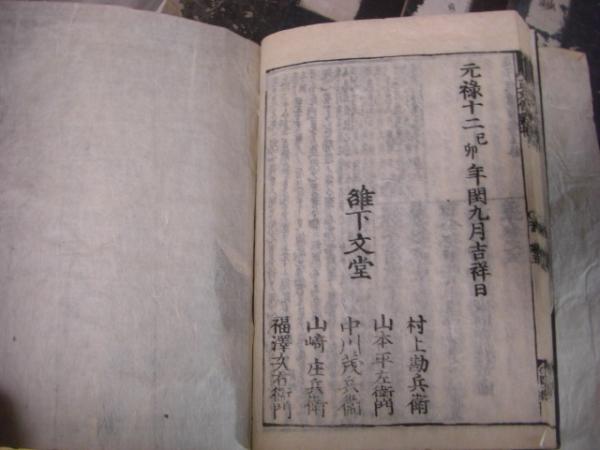 元祿十二己卯年閏九月吉祥日
雒下文堂
村上勘兵衛
山本平左衛門
中川茂兵衛
山﨑庄兵衛
福澤文右衛門